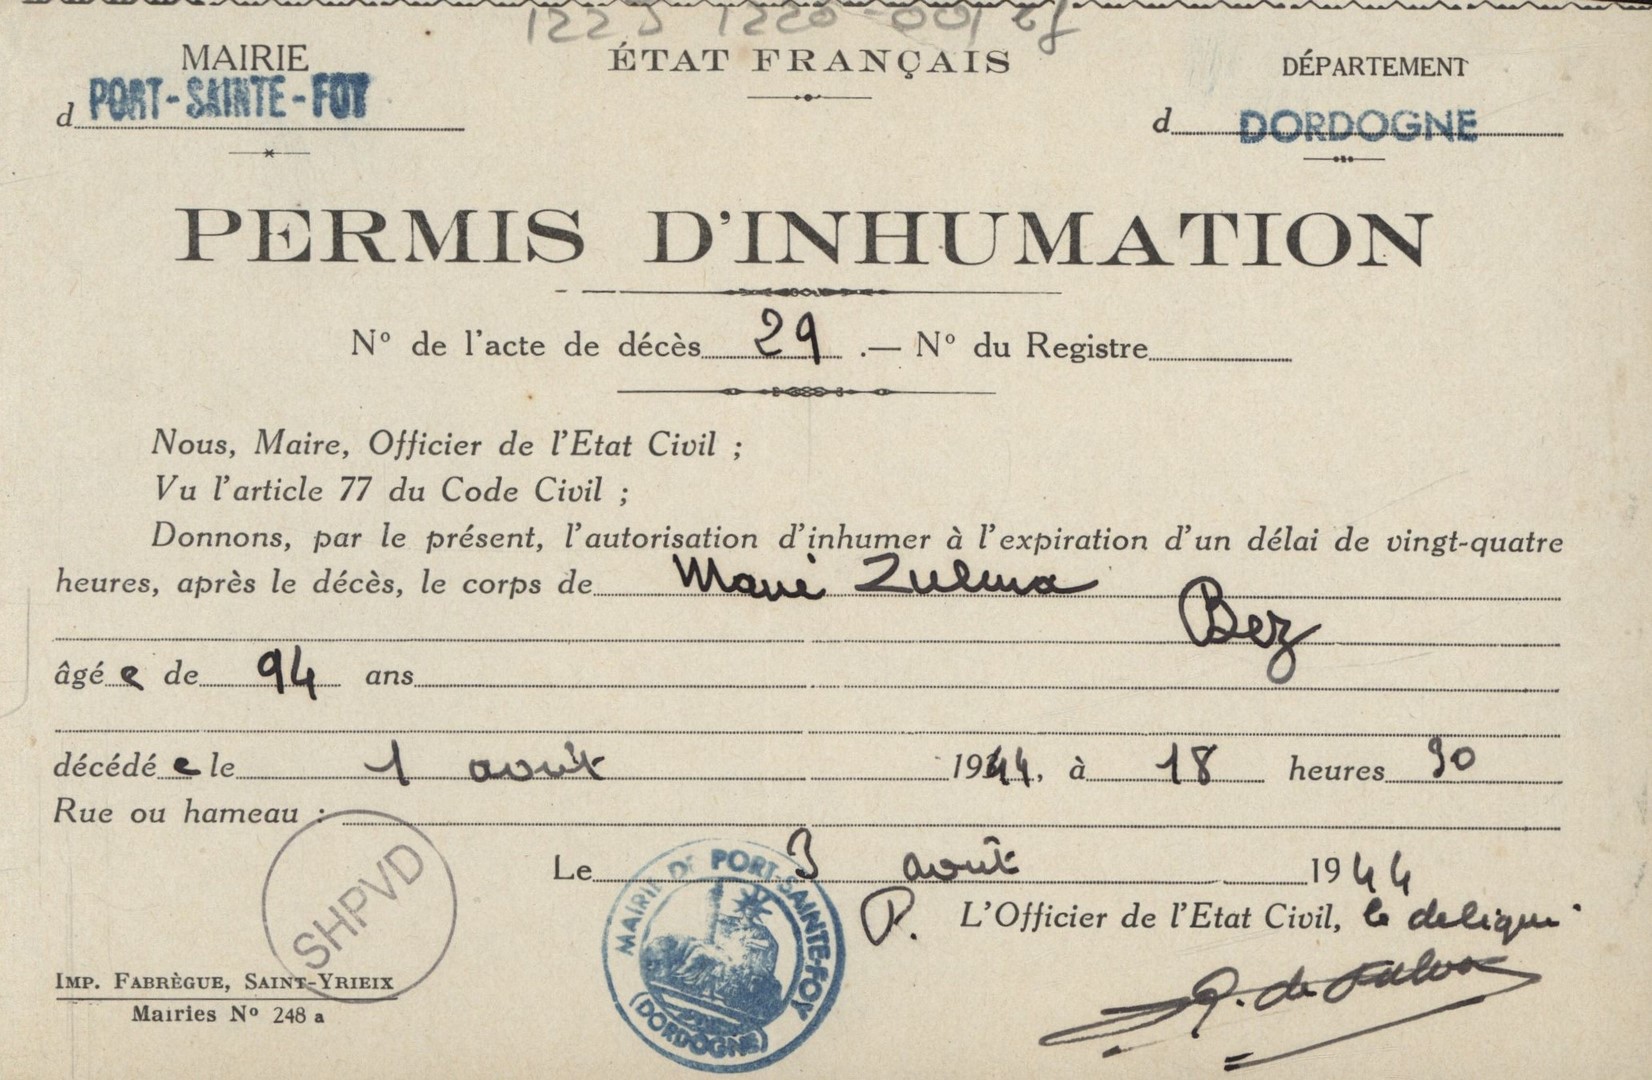 MAIRIE
d PORT-SAINTE-FOY
ÉTAT FRANÇAIS
DÉPARTEMENT
d DORDOGNE
PERMIS D'INHUMATION
Nº de l'acte de décès 29 .— Nº du Registre
Nous, Maire, Officier de l'Etat Civil ;
Vu l'article 77 du Code Civil ;
Donnons, par le présent, l'autorisation d'inhumer à l'expiration d'un délai de vingt-quatre
heures, après le décès, le corps de Marie Zulma
Bez
âgé e de 94 ans
décédé e le 1 août 1944, à 18 heures 30
Rue ou hameau :
Le 3 août 1944
P. L'Officier de l'Etat Civil, le
MAIRIE DE PORT-SAINTE-FOY
(DORDOGNE)
SHPVD
IMP. FABRÈGUE, SAINT-YRIEIX
Mairies Nº 248 a